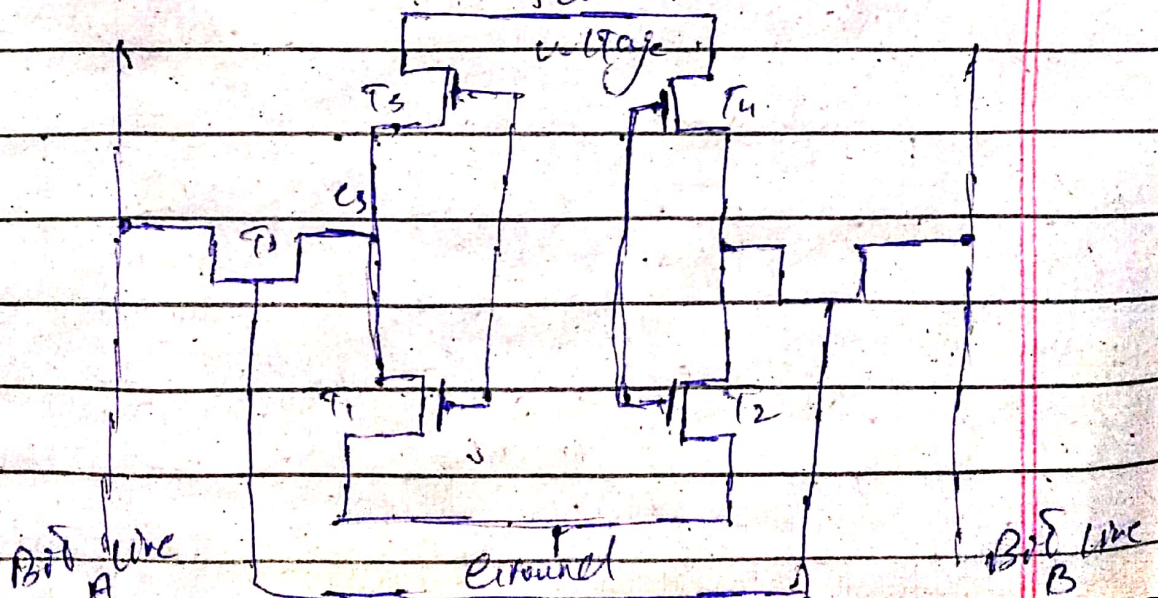 voltage
T3
T4
C3
T1
T2
Bit Line
A
Ground
Bit Line
B